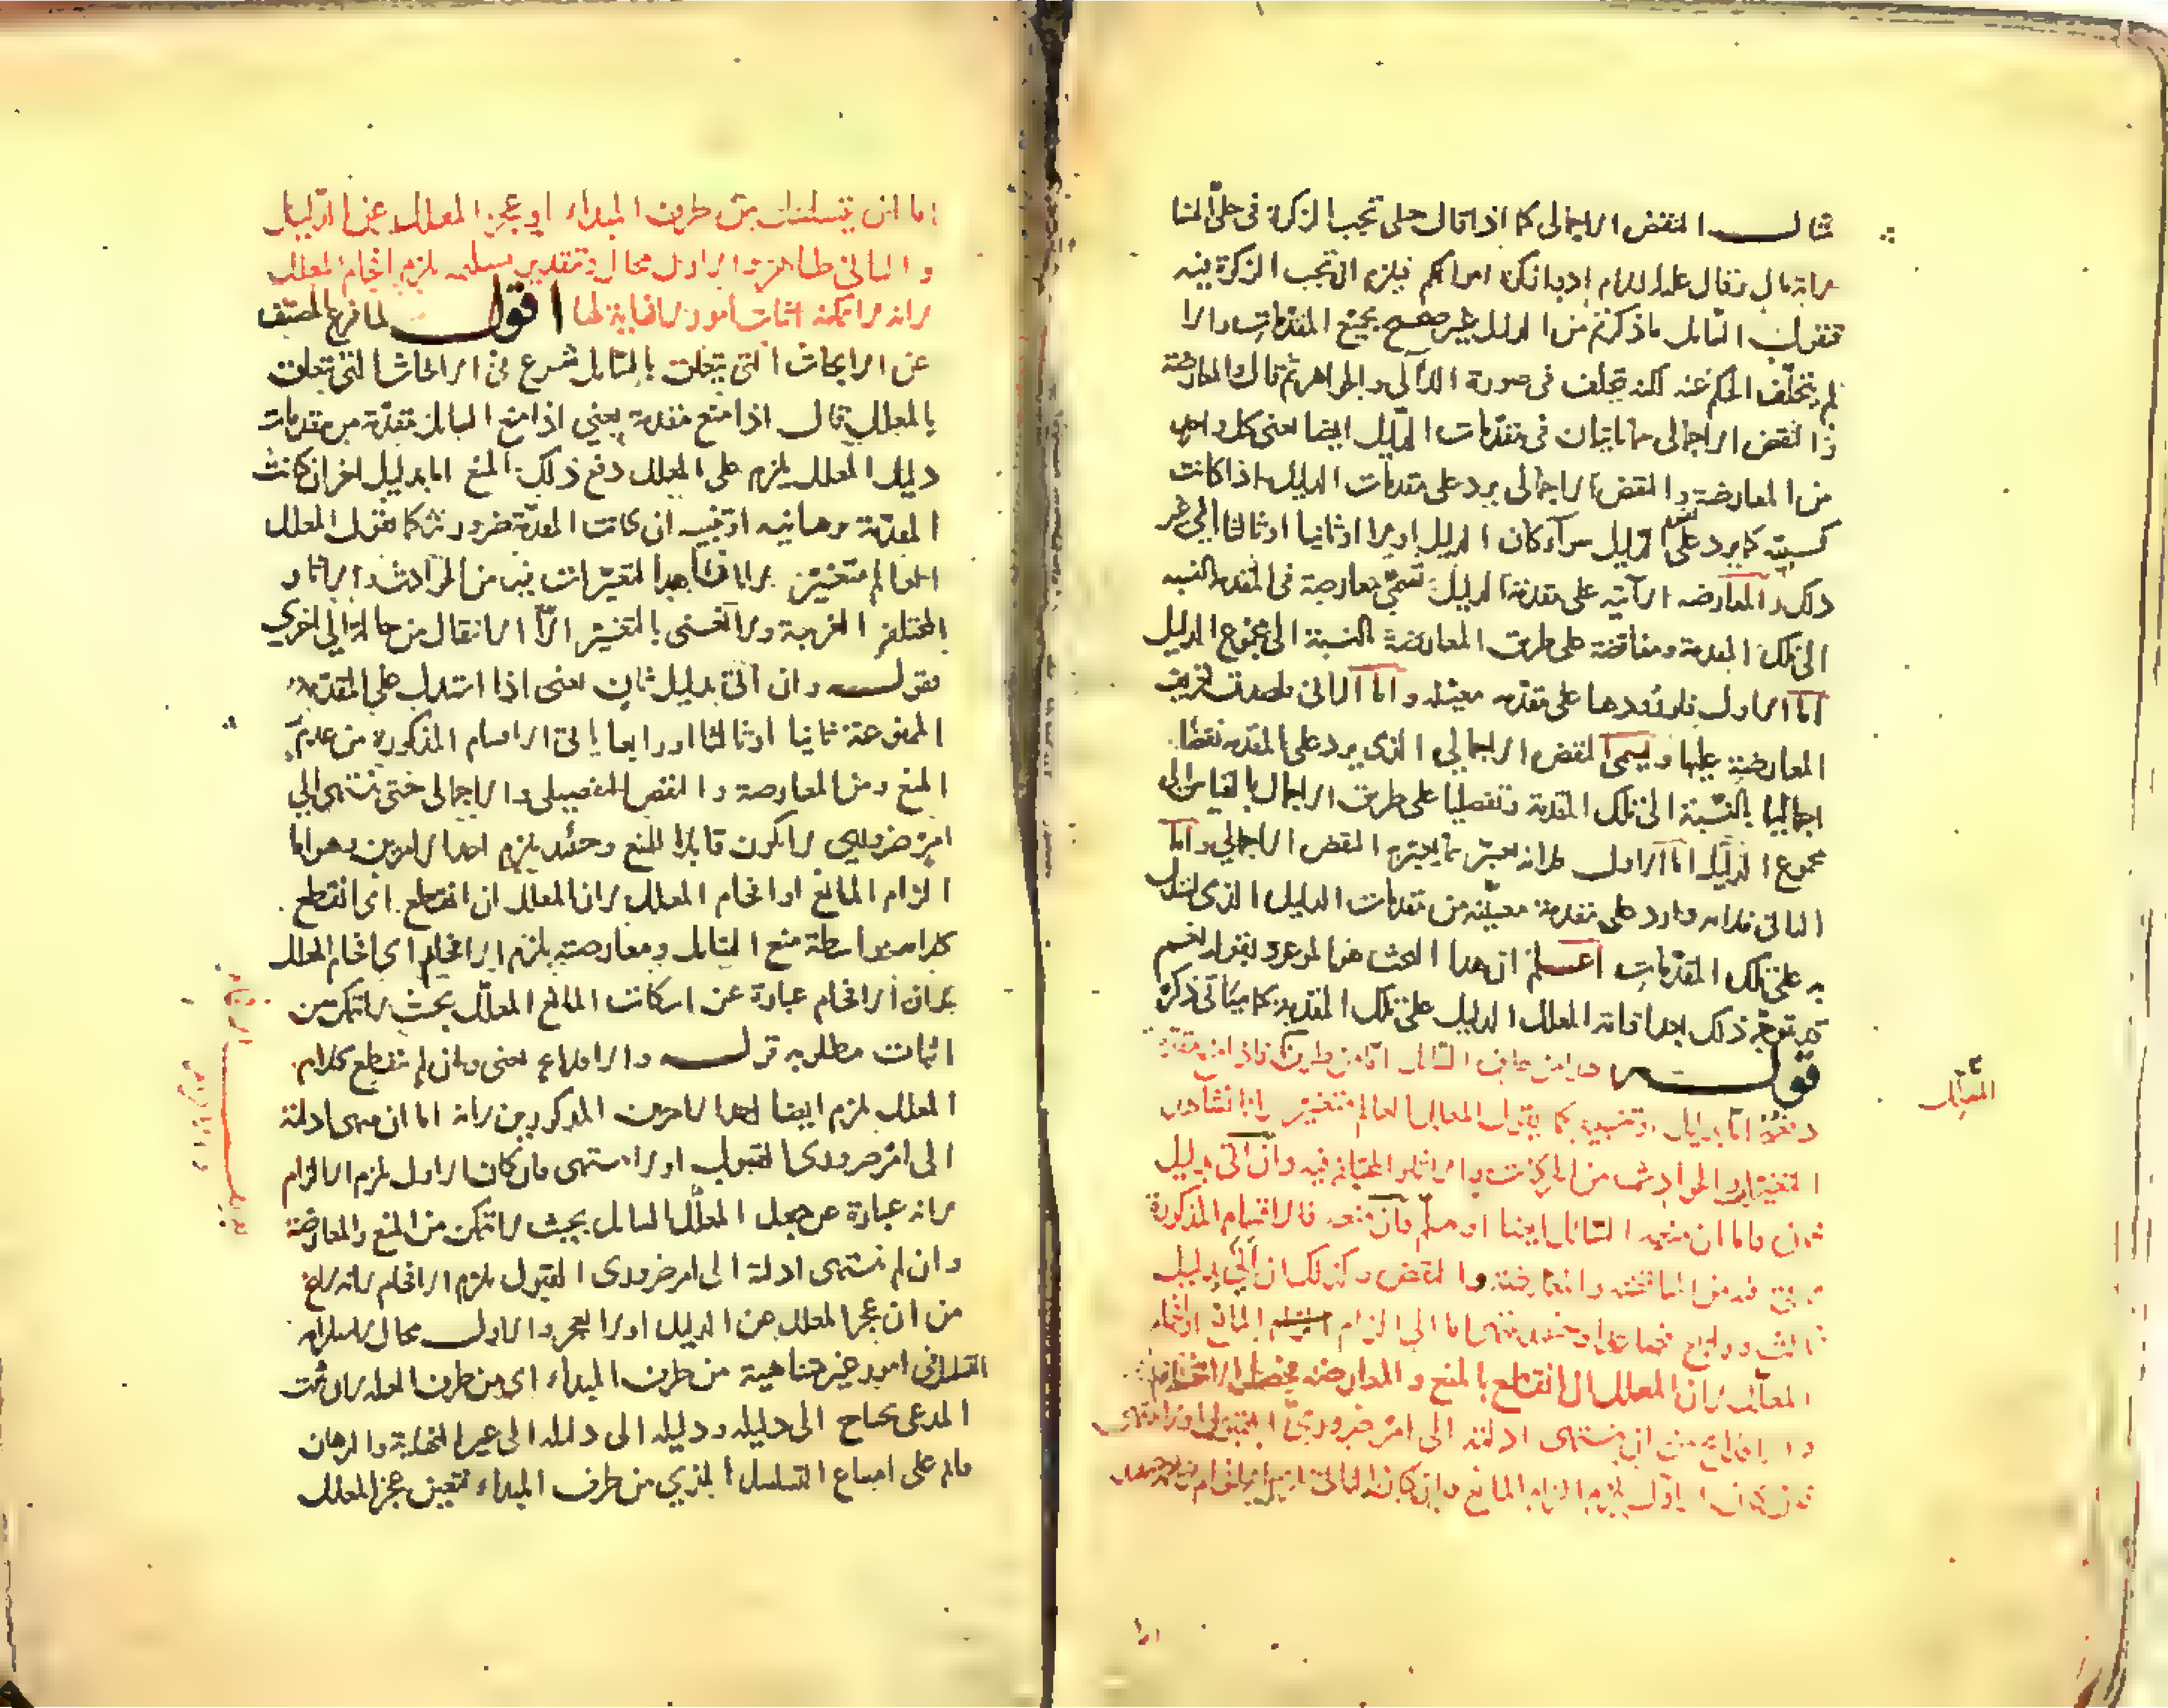 مثال النقض الاجمالي كما اذا قال حلي تجب الزكوة في حلي النسا
لانه قال فقال عليه السلام ادوا زكوة اموالكم فيلزم ان تجب الزكوة فيه
فنقول السايل ما ذكرتم من الدليل غير صحيح بجميع المقدمات والا
لم يتخلف الحكم عنه لكنه تخلف في صورة اللآلي والجواهر ثم قال المعارضة
ذا النقض الاجمالي ياتيان في مقدمات الدليل ايضا يعني كل واحد
من المعارضة والنقض الاجمالي يرد على مقدمات الدليل اذا كانت
كسبية كما يرد على الدليل سواء كان الدليل اولا او ثانيا او ثالثا الى غير
ذلك والمعارضة الآتية على مقدمة الدليل تسمى معارضة في المقدمة بالنسبة
الى تلك المقدمة ومناقضة على طريق المعارضة بالنسبة الى مجموع الدليل
اما الاول فلورودها على مقدمة معينة واما الثاني فلصدق تعريف
المعارضة عليها ويسمى النقض الاجمالي الذي يرد على المقدمة نقضا
اجماليا بالنسبة الى تلك المقدمة وتفصيليا على طريق الاجمال بالقياس الى
مجموع الدليل اما الاول فلانه يعتبر بما يعتبر به النقض الاجمالي واما
الثاني فلانه وارد على مقدمة معينة من مقدمات الدليل الذي استدل
به على تلك المقدمات اعلم ان هذا البحث هو الموعود بقوله نعم
قد يتوجه ذلك بعد اقامة المعلل الدليل على تلك المقدمة كما سياتي ذكره
قوله هذا من جانب السائل اما من طرف فاذا منع مقدمة
دفعه اما بدليل او تنبيه كما يقول المعلل العالم متغير لانا نشاهد
التغيرات والحوادث من الحركات والاثار المختلفة فيه وان اتى بدليل
ثان فاما ان منعه السائل ايضا او سلم فان منعه فالاقسام المذكورة
من المناقضة والمعارضة والنقض وكذلك ان اتى بدليل
ثالث ورابع فصاعدا ينتهي اما الى الزام المانع او افحام
المعلل لان المعلل ان انقطع بالمنع والمعارضة يحصل الافحام
والا فلا يخ من ان ينتهي ادلته الى امر ضروري القبول او لا ينتهي
فان كان الاول يلزم الزام المانع وان كان الثاني يلزم الافحام
المعلل
اما ان يتسلسل من طرف المبداء او عجز المعلل عن الدليل
والثاني ظاهر والاول محال وتقدير تسليمه يلزم افحام المعلل
لانه لا يمكنه اثبات امور لا نهاية لها اقول لما فرغ المصنف
عن الابحاث التي تتعلق بالسايل شرع في الابحاث التي تتعلق
بالمعلل قال اذا منع مقدمة يعني اذا منع السايل مقدمة من مقدمات
دليل المعلل يلزم على المعلل دفع ذلك المنع اما بدليل اخر ان كانت
المقدمة برهانية او تنبيه ان كانت المقدمة ضرورية كما يقول المعلل
العالم متغير لانا نشاهد التغيرات فيه من الحوادث والاثار
المختلفة الغريبة ولا نعني بالتغير الا الانتقال من حالة الى اخرى
قوله وان اتى بدليل ثان يعني اذا استدل على المقدمة
الممنوعة ثانيا او ثالثا او رابعا ياتي الاقسام المذكورة من عدم
المنع ومن المعارضة والنقض التفصيلي والاجمالي حتى ينتهي الى
امر ضروري لا يكون قابلا للمنع وحينئذ يلزم احد الامرين وهو اما
الزام المانع او افحام المعلل لان المعلل ان انقطع اي انقطع
كلامه بواسطة منع السايل ومعارضته يلزم الافحام اي افحام المعلل
لان الافحام عبارة عن اسكات المانع المعلل بحيث لا يتمكن من
اثبات مطلوبه قوله والا فلا يخ يعني وان لم ينقطع كلام
المعلل يلزم ايضا احد الامرين المذكورين لانه اما ان ينتهي ادلته
الى امر ضروري القبول او لا ينتهي فان كان الاول يلزم الالزام
لانه عبارة عن جعل المعلل السايل بحيث لا يتمكن من المنع والمعارضة
وان لم ينتهي ادلة الى امر ضروري القبول يلزم الافحام لانه لا يخ
من ان عجز المعلل عن الدليل او لا يعجز والاول محال لاستلزامه
التسلسل في امور غير متناهية من طرف المبداء اي من طرف العلة لان ثبت
المدعى يحتاج الى دليله ودليله الى دليله الى غير النهاية والبرهان
قايم على امتناع التسلسل الذي من طرف المبداء فتعين عجز المعلل